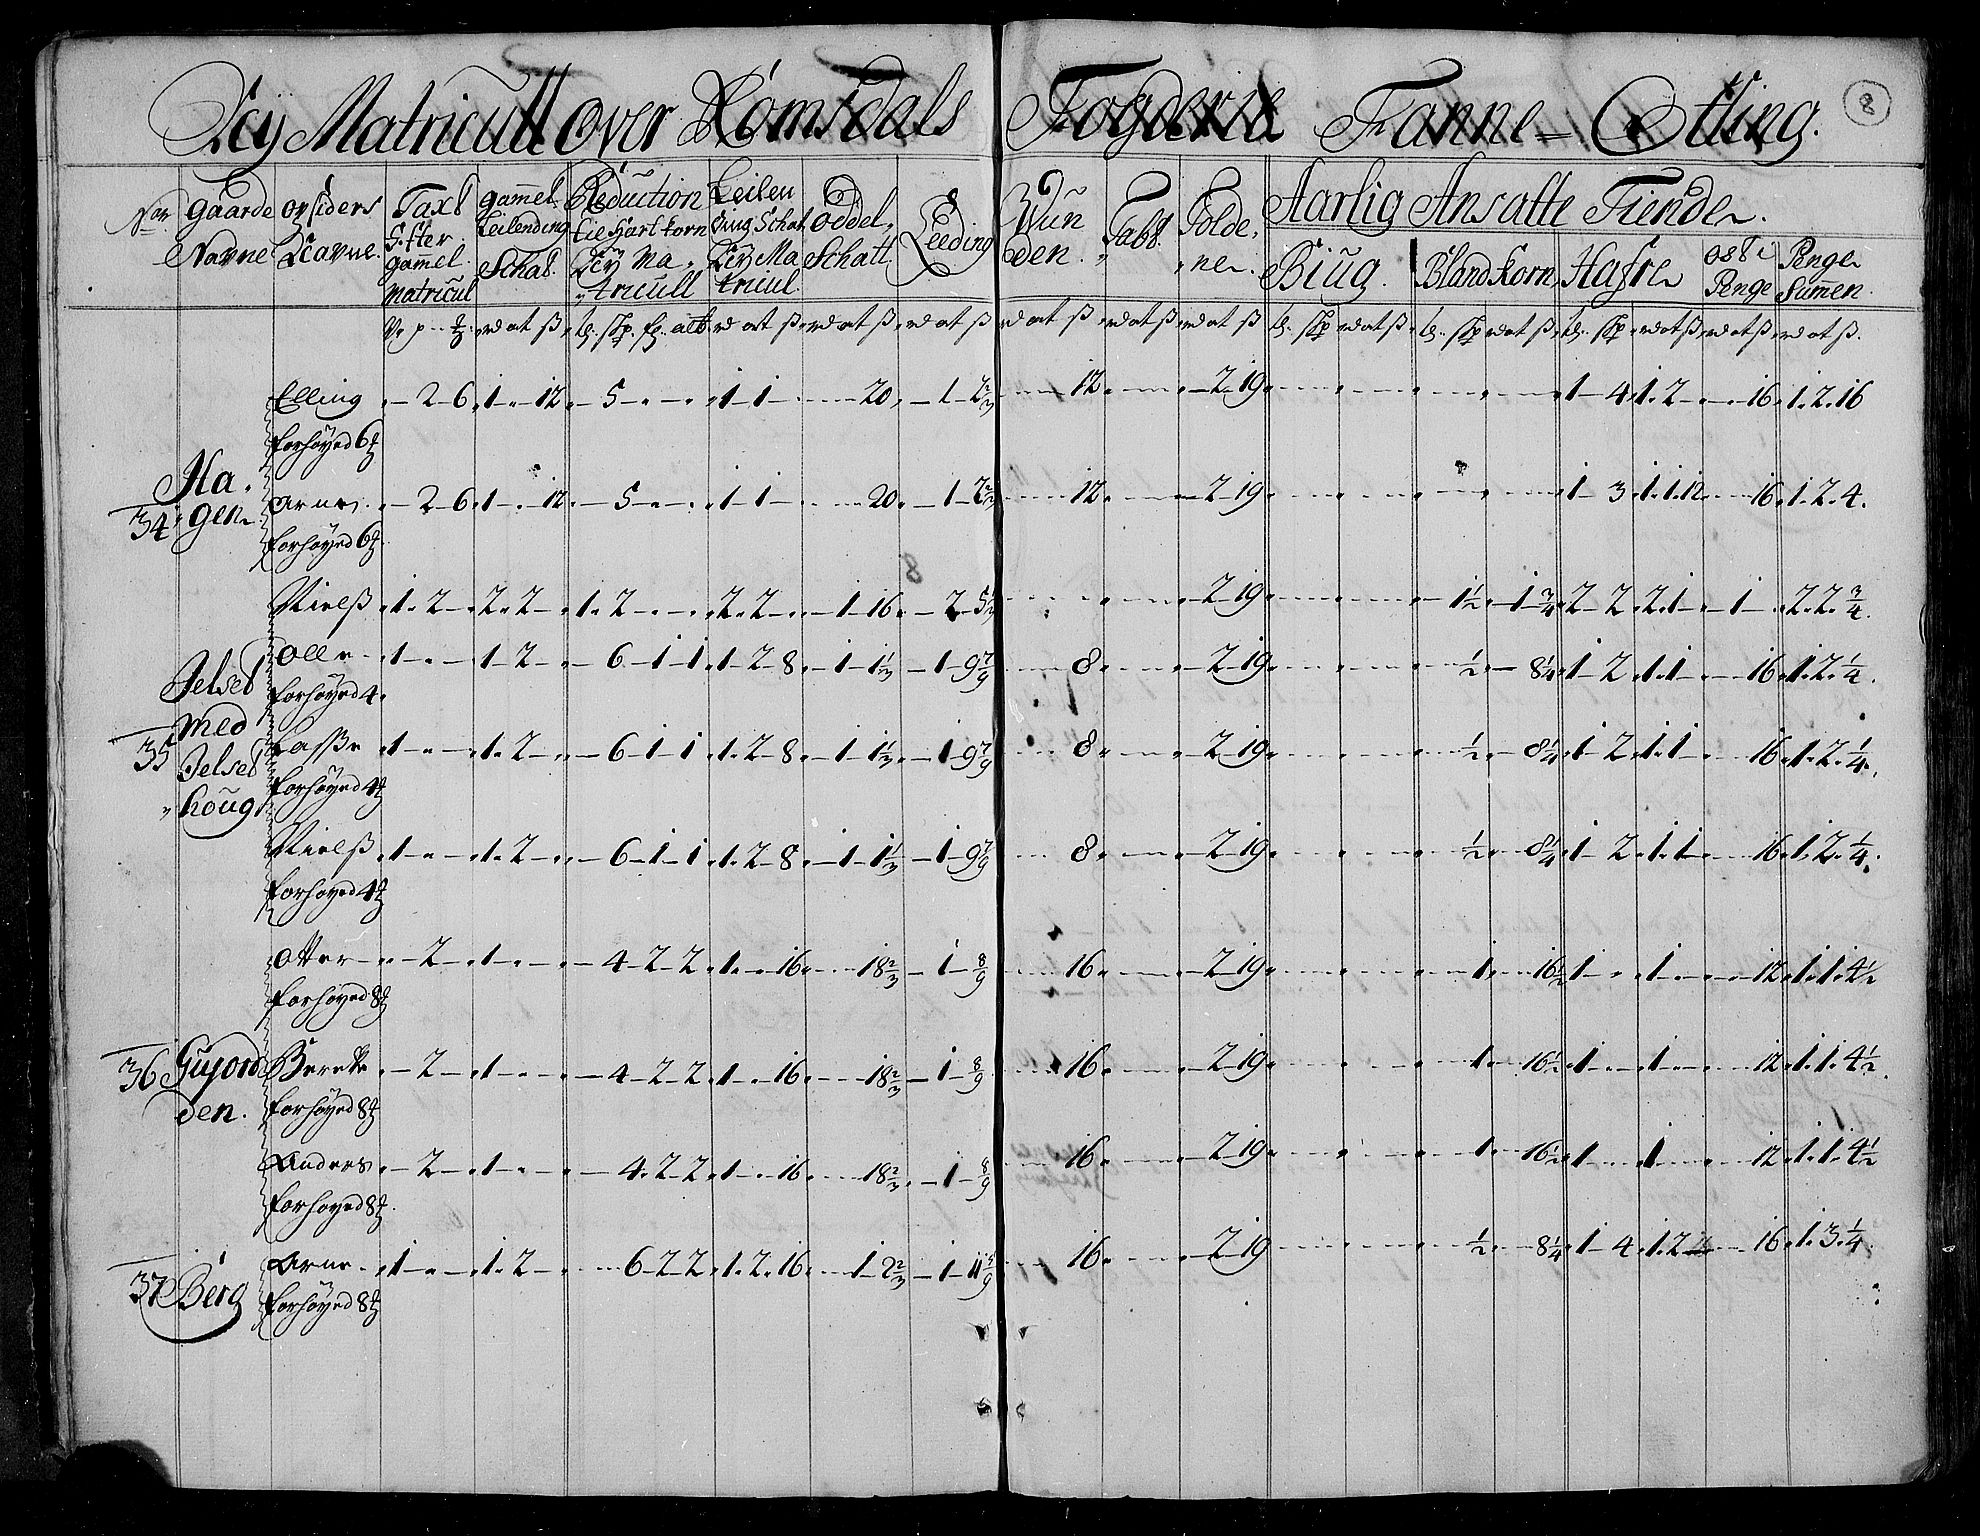 Ny Matricull over Romsdals Fogderie Fanne-Otting.
8
No. gaarde Navne
opsiders Navne
Taxt efter gammel Matricul
gammel Leilending Schat
Reduction til Hartkorn Ny Matricull
Leilending Schat Ny Matricul
Oddel Schatt
Leeding
Wunden
Tabt
Foldene
Aarlig Ansatte Tiende
Biug
Bland Korn
Hafre
Ost Penge
Penge Summen
Elling - 2 - 6 1 - 12 - 5 - 1 1 - 20 - 1 - 7 2/3 12 - 2 - 19 1 - 4 1 2 - 16 1 2 16
forhøyed 6
34 Hagen
Arne - 2 - 6 1 - 12 - 5 - 1 1 - 20 - 1 - 7 2/3 12 - 2 - 19 1 - 3 1 1 12 16 1 2 4
forhøyed 6
Nielss 1 2 2 2 - 1 2 - 2 2 - 1 16 - 2 - 5 1/3 2 19 1 1/2 - 1 3/4 2 - 2 2 1 - 1 - 2 2 3/4
8
35 Jelset med Jelset houg
Olle 1 - 1 - 2 - 6 - 1 - 1 1 2 8 - 1 - 1 1/3 - 1 9 7/9 8 - 2 19 1/2 - 8 1/4 1 - 2 1 1 - 16 1 2 1/4
forhøyed 4
Lasse 1 - 1 2 - 6 - 1 - 1 1 2 8 - 1 - 1 1/3 - 1 9 7/9 8 - 2 19 1/2 - 8 1/4 1 - 2 1 1 - 16 1 2 1/4
forhøyed 4
Nielss 1 - 1 2 - 6 - 1 - 1 1 2 8 - 1 - 1 1/3 - 1 9 7/9 8 - 2 19 1/2 - 8 1/4 1 - 2 1 1 - 16 1 2 1/4
forhøyed 4
Otter - 2 - 1 - 4 - 2 - 2 1 - 16 - 18 2/3 - 1 - 8/9 16 - 2 19 1 - 16 1/2 1 - 1 - 12 1 1 4 1/2
forhøyed 8
36 Gujorden
Berette - 2 - 1 - 4 - 2 - 2 1 - 16 - 18 2/3 - 1 - 8/9 16 - 2 19 1 - 16 1/2 1 - 1 - 12 1 1 4 1/2
forhøyed 8
Anders - 2 - 1 - 4 - 2 2 1 - 16 - 18 2/3 - 1 - 8/9 16 - 2 19 1 - 16 1/2 1 - 1 - 12 1 1 4 1/2
forhøyed 8
37 Berg
Arne 1 - 1 2 - 6 - 2 - 2 1 2 16 - 1 2 2/3 - 1 - 11 5/9 16 - 2 19 1/2 - 8 1/4 1 - 4 1 2 - 16 1 3 1/4
forhøyed 8